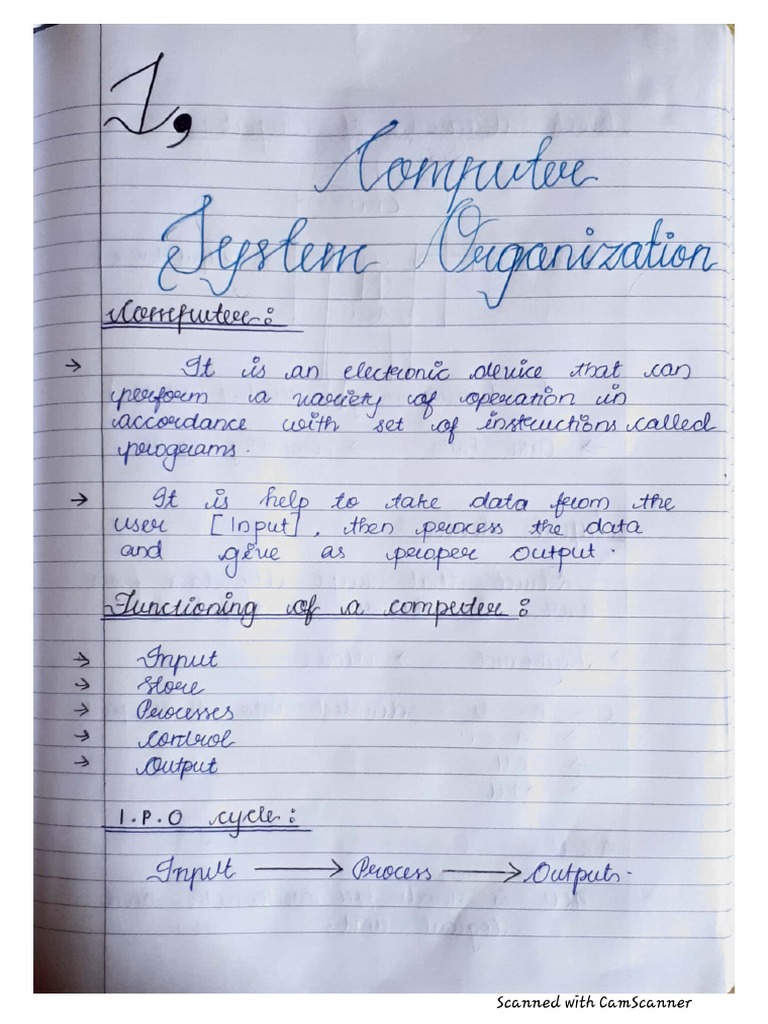 1,
Computer
System Organization
Computer :
→ It is an electronic device that can
perform a variety of operation in
accordance with set of instructions called
programs.
→ It is help to take data from the
user [Input], then process the data
and give as proper output.
Functioning of a computer :
→ Input
→ Store
→ Processes
→ Control
→ Output
I.P.O cycle :
Input → Process → Outputs.
Scanned with CamScanner